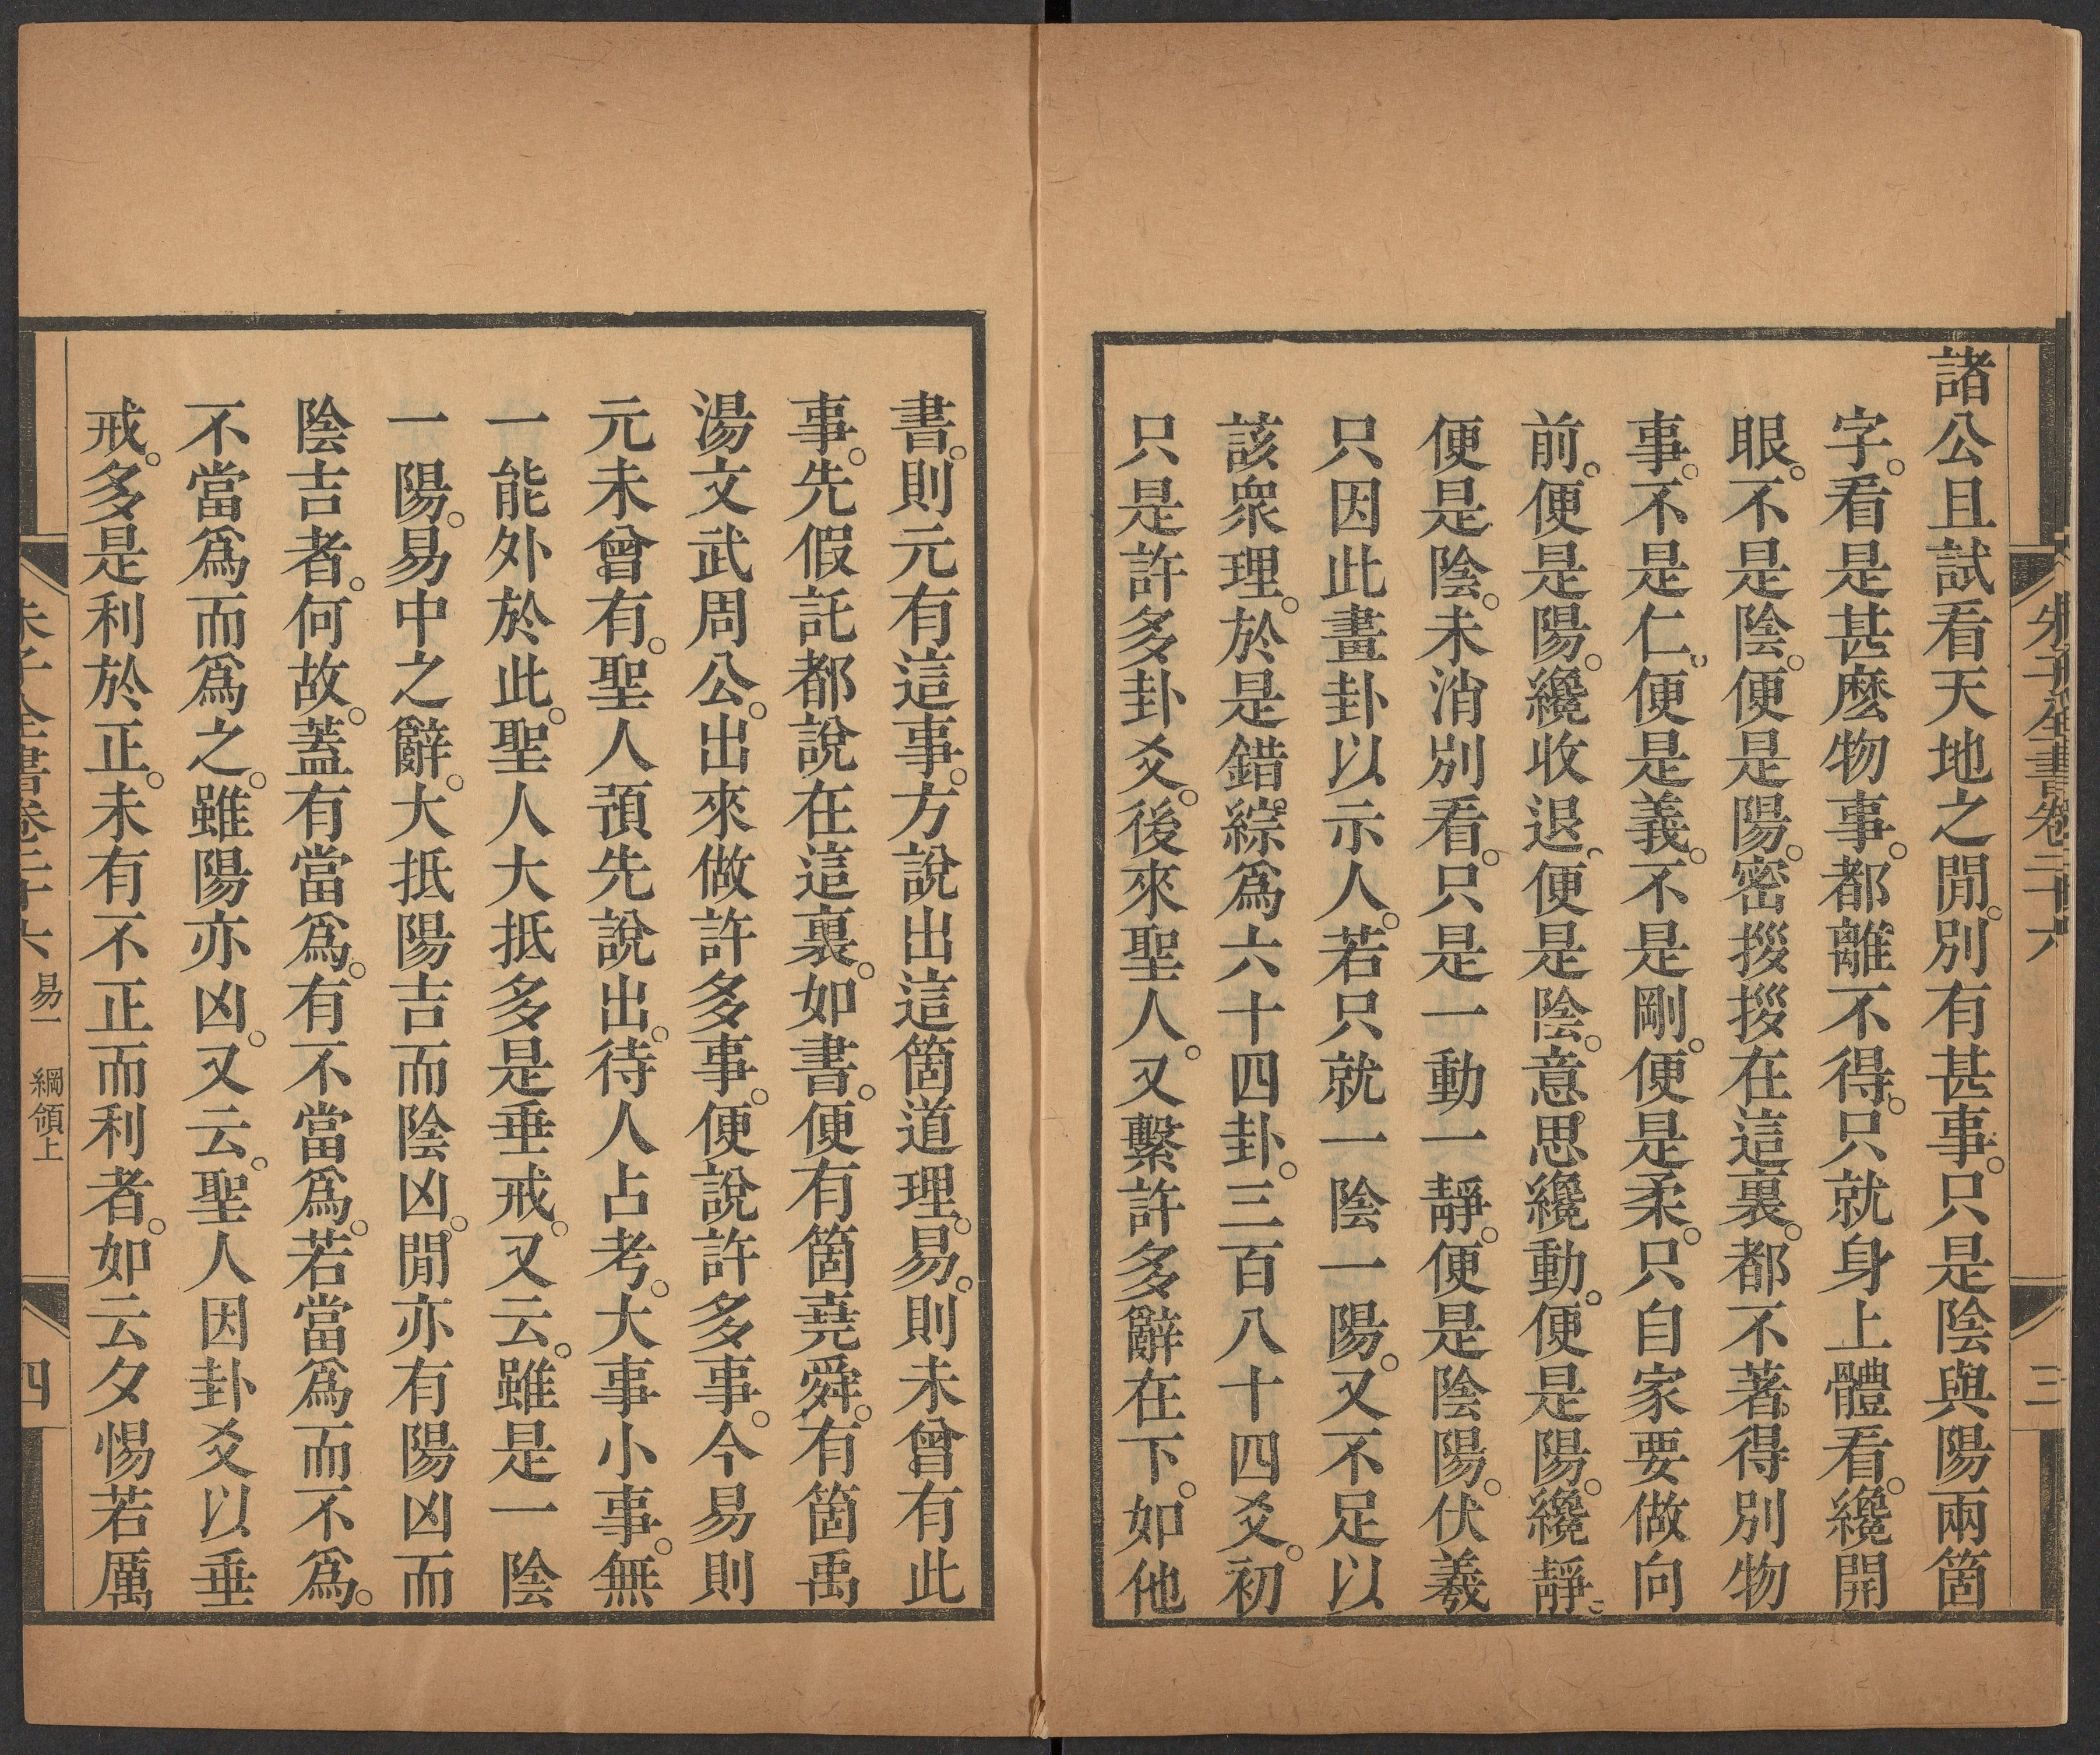 朱子全書卷二十六
三
諸公且試看天地之閒。別有甚事。只是陰與陽兩箇
字。看是甚麽物事。都離不得。只就身上體看。纔開
眼。不是陰。便是陽。密拶拶在這裏。都不著得別物
事。不是仁。便是義。不是剛。便是柔。只自家要做向
前。便是陽。纔收退。便是陰。意思纔動。便是陽。纔靜。
便是陰。未消別看。只是一動一靜。便是陰陽。伏羲
只因此畫卦以示人。若只就一陰一陽。又不足以
該衆理。於是錯綜爲六十四卦。三百八十四爻。初
只是許多卦爻。後來聖人。又繫許多辭在下。如他
書。則元有這事。方說出這箇道理。易。則未曾有此
事。先假託都說在這裏。如書。便有箇堯舜。有箇禹
湯文武周公。出來做許多事。便說許多事。今易則
元未曾有。聖人預先說出。待人占考。大事小事。無
一能外於此。聖人大抵多是垂戒。又云。雖是一陰
一陽。易中之辭。大抵陽吉而陰凶。閒亦有陽凶而
陰吉者。何故。蓋有當爲。有不當爲。若當爲而不爲。
不當爲而爲之。雖陽亦凶。又云。聖人因卦爻以垂
戒。多是利於正。未有不正而利者。如云夕惕若厲
朱子全書卷二十六 易一 綱領上
四